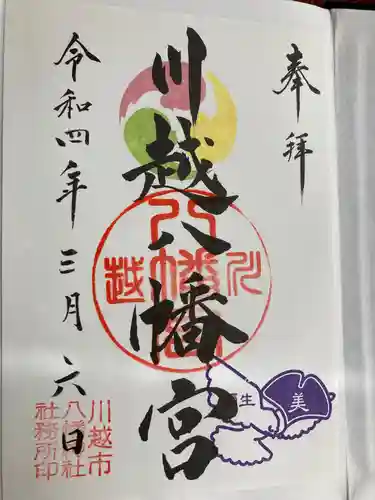 奉拝
川越八幡宮
令和四年三月六日
川越
八幡宮
川越市
八幡神社
社務所印
美
生